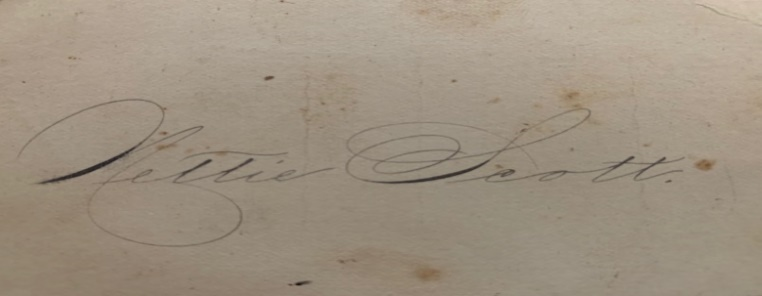 Nettie Scott.